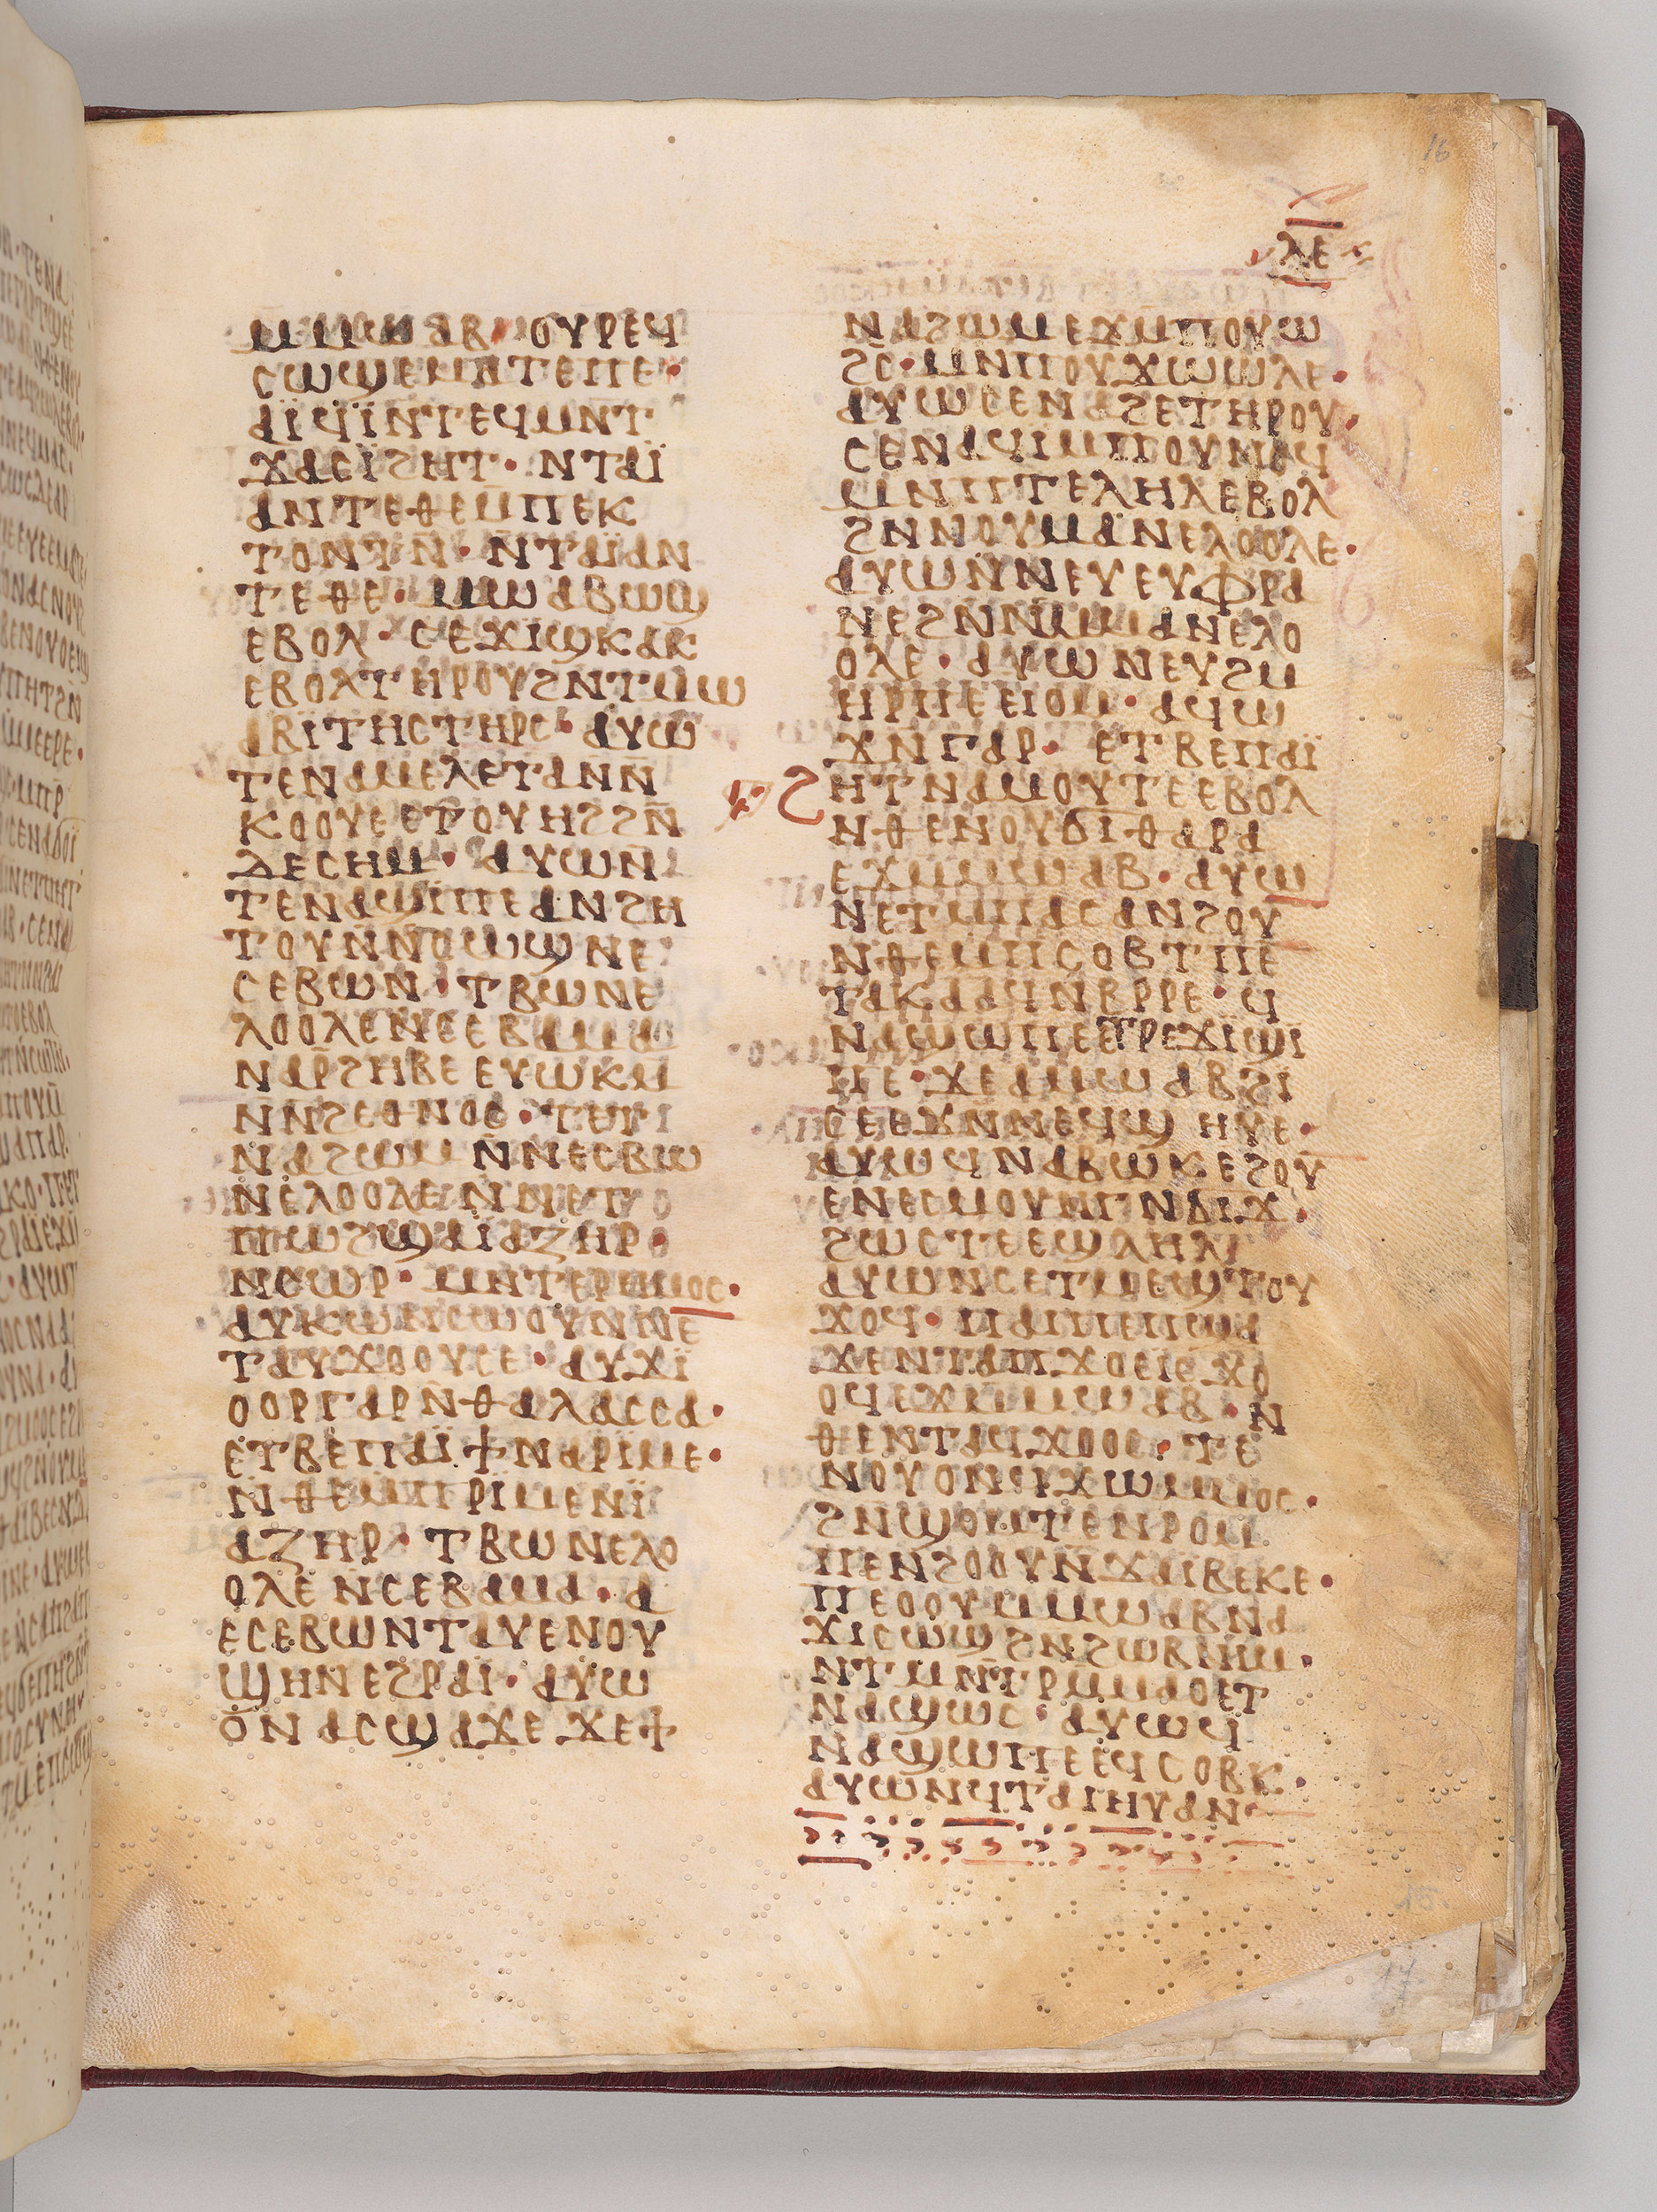 16
ⲗⲉ
ⲙⲙⲱⲁⲃ· ⲟⲩⲣⲉϥ
ⲥⲱϣⲉⲙⲁⲧⲉⲡⲉ·
ⲁϊϥϊⲛⲧⲉϥⲙⲛⲧ
ϫⲁⲥϊϩⲏⲧ· ⲛⲧⲁϊ
ⲁⲛⲧⲉⲑⲉⲙⲡⲉⲕ
ⲧⲟⲛⲧⲛ̄· ⲛⲧⲁϊⲁⲛ
ⲧⲉⲑⲉ· ⲙⲱⲁⲃⲱϣ
ⲉⲃⲟⲗ· ⲥⲉϫⲓϣⲕⲁⲕ
ⲉⲃⲟⲗⲧⲏⲣⲟⲩϩⲛⲧⲙⲱ
ⲁⲃⲓⲧⲏⲥⲧⲏⲣⲥ· ⲁⲩⲱ
ⲧⲉⲛⲁⲙⲉⲗⲉⲧⲁⲛⲛ̄
ⲕⲟⲟⲩⲉⲉⲧⲟⲩⲏϩϩⲛ̄
ⲇⲉⲥⲏⲙ· ⲁⲩⲱⲛ̄
ⲧⲉⲛⲁϣⲓⲡⲉⲁⲛϩⲏ
ⲧⲟⲩⲛ̄ⲛ̄ⲥⲱϣⲛⲉ
ⲥⲉⲃⲱⲛ· ⲧⲃⲱⲛⲉ
ⲗⲟⲟⲗⲉⲛⲥⲉⲃⲁⲙⲁ
ⲛⲁⲣ̄ϩⲏⲃⲉⲉⲩⲱⲕⲙ
ⲛ̄ⲛϩⲉⲑⲛⲟⲥ· ⲧⲉⲧⲛ
ⲛⲁϩⲱⲙⲛ̄ⲛⲉⲥⲃⲱ
ⲛⲉⲗⲟⲟⲗⲉⲛⲛⲉⲧ
ⲡⲱϩϣⲁϊⲁⲍⲏⲣ·
ⲛⲥⲱⲣ· ⲙⲛⲧⲉⲣⲏⲙⲟⲥ·
ⲁⲩⲕⲱⲛⲥⲱⲟⲩⲛⲛⲉ
ⲧⲁⲩϫⲟⲟⲩⲥⲉ· ⲁⲩϫϊ
ⲟⲟⲣⲅⲁⲣⲛ̄ⲑⲁⲗⲁⲥⲥⲁ·
ⲉⲧⲃⲉⲡⲁϊϯⲛⲁⲣⲓⲙⲉ·
ⲛ̄ⲑⲉⲙⲡⲣⲓⲙⲉⲛϊ
ⲁⲍⲏⲣ· ⲧⲃⲱⲛⲉⲗⲟ
ⲟⲗⲉⲛⲥⲉⲃⲁⲙⲁ· ⲁ
ⲉⲥⲉⲃⲱⲛⲧⲁⲩⲉⲛⲟⲩ
ϣⲏⲛⲉϩⲣⲁϊ· ⲁⲩⲱ
ⲟⲛⲁⲥϣⲁϫⲉϫⲉϯ
ⲛⲁϩⲱⲙⲉϫⲙⲡⲟⲩⲱ
ϩⲥ· ⲙⲛⲡⲟⲩϫⲱⲱⲗⲉ·
ⲁⲩⲱⲥⲉⲛⲁϩⲉⲧⲏⲣⲟⲩ·
ⲥⲉⲛⲁϥⲓⲙⲡⲟⲩⲛⲟϥ
ⲙⲛⲡⲧⲉⲗⲏⲗⲉⲃⲟⲗ
ϩⲛⲛⲟⲩⲙⲁⲛⲉⲗⲟⲟⲗⲉ·
ⲁⲩⲱⲛ̄ⲛⲉⲩⲉⲩⲫⲣⲁ
ⲛⲉϩⲛⲛ̄ⲙⲁⲛⲉⲗⲟ
ⲟⲗⲉ· ⲁⲩⲱⲛⲉⲩϩⲙ
ⲏⲣⲡⲉⲉⲓⲟⲙ· ⲁϥⲱ
ϫⲛ̄ⲅⲁⲣ· ⲉⲧⲃⲉⲡⲁϊ
ⲏⲧⲛⲁⲙⲟⲩⲧⲉⲉⲃⲟⲗ
ⲛⲑⲉⲛⲟⲩϭⲓⲑⲁⲣⲁ
ⲉϫⲙⲙⲱⲁⲃ· ⲁⲩⲱ
ⲛⲉⲧⲙⲡⲁⲥⲁⲛϩⲟⲩ
ⲛⲑⲉⲙⲡⲥⲟⲃⲧⲡⲉ
ⲧⲁⲕⲁⲁϥⲛⲃⲣⲣⲉ· ϥ
ⲛⲁϣⲱⲡⲉⲉⲧⲣⲉϫϊϣⲓ
ⲡⲉ· ϫⲉⲁⲙⲱⲁⲃϩⲓ
ⲥⲉⲉϫⲛ̄ⲛⲉϥϣⲏⲩⲉ·
ⲁⲩⲱϥⲛⲁⲃⲱⲕⲉϩⲟⲩ
ⲉⲛⲉⲥⲙⲟⲩⲛⲅⲛϭⲓϫ·
ϩⲱⲥⲧⲉⲉϣⲗⲏⲗ
ⲁⲩⲱⲛⲥⲉⲧⲙⲉϣⲧⲟⲩ
ϫⲟϥ· ⲡⲁⲓⲡⲉⲡϣⲁ
ϫⲉⲛⲧⲁⲡϫⲟⲉⲓⲥϫⲟ
ⲟϥⲉϫⲙⲙⲱⲁⲃ· ⲛ
ⲑⲉⲛⲧⲁϥϫⲟⲟⲥ· ⲧⲉ
ⲛⲟⲩⲟⲛϯϫⲱⲙⲙⲟⲥ·
ϩⲛϣⲟⲙⲧⲉⲛⲣⲟⲙ
ⲡⲉⲛϩⲟⲟⲩⲛ̄ϫⲁⲓⲃⲉⲕⲉ·
ⲡⲉⲟⲟⲩⲙⲙⲱⲁⲃⲛⲁ
ϫⲓⲥⲱϣϩⲛϩⲱⲃⲛⲓⲙ·
ⲛⲧⲙⲛ̄ⲧⲣⲙⲙⲁⲟⲉⲧ
ⲛⲁϣⲱⲥ· ⲁⲩⲱϥ
ⲛⲁϣⲱⲡⲉⲉϥⲥⲟⲃⲕ·
ⲁⲩⲱⲛϥⲧⲁⲓⲏⲩⲁⲛ
17